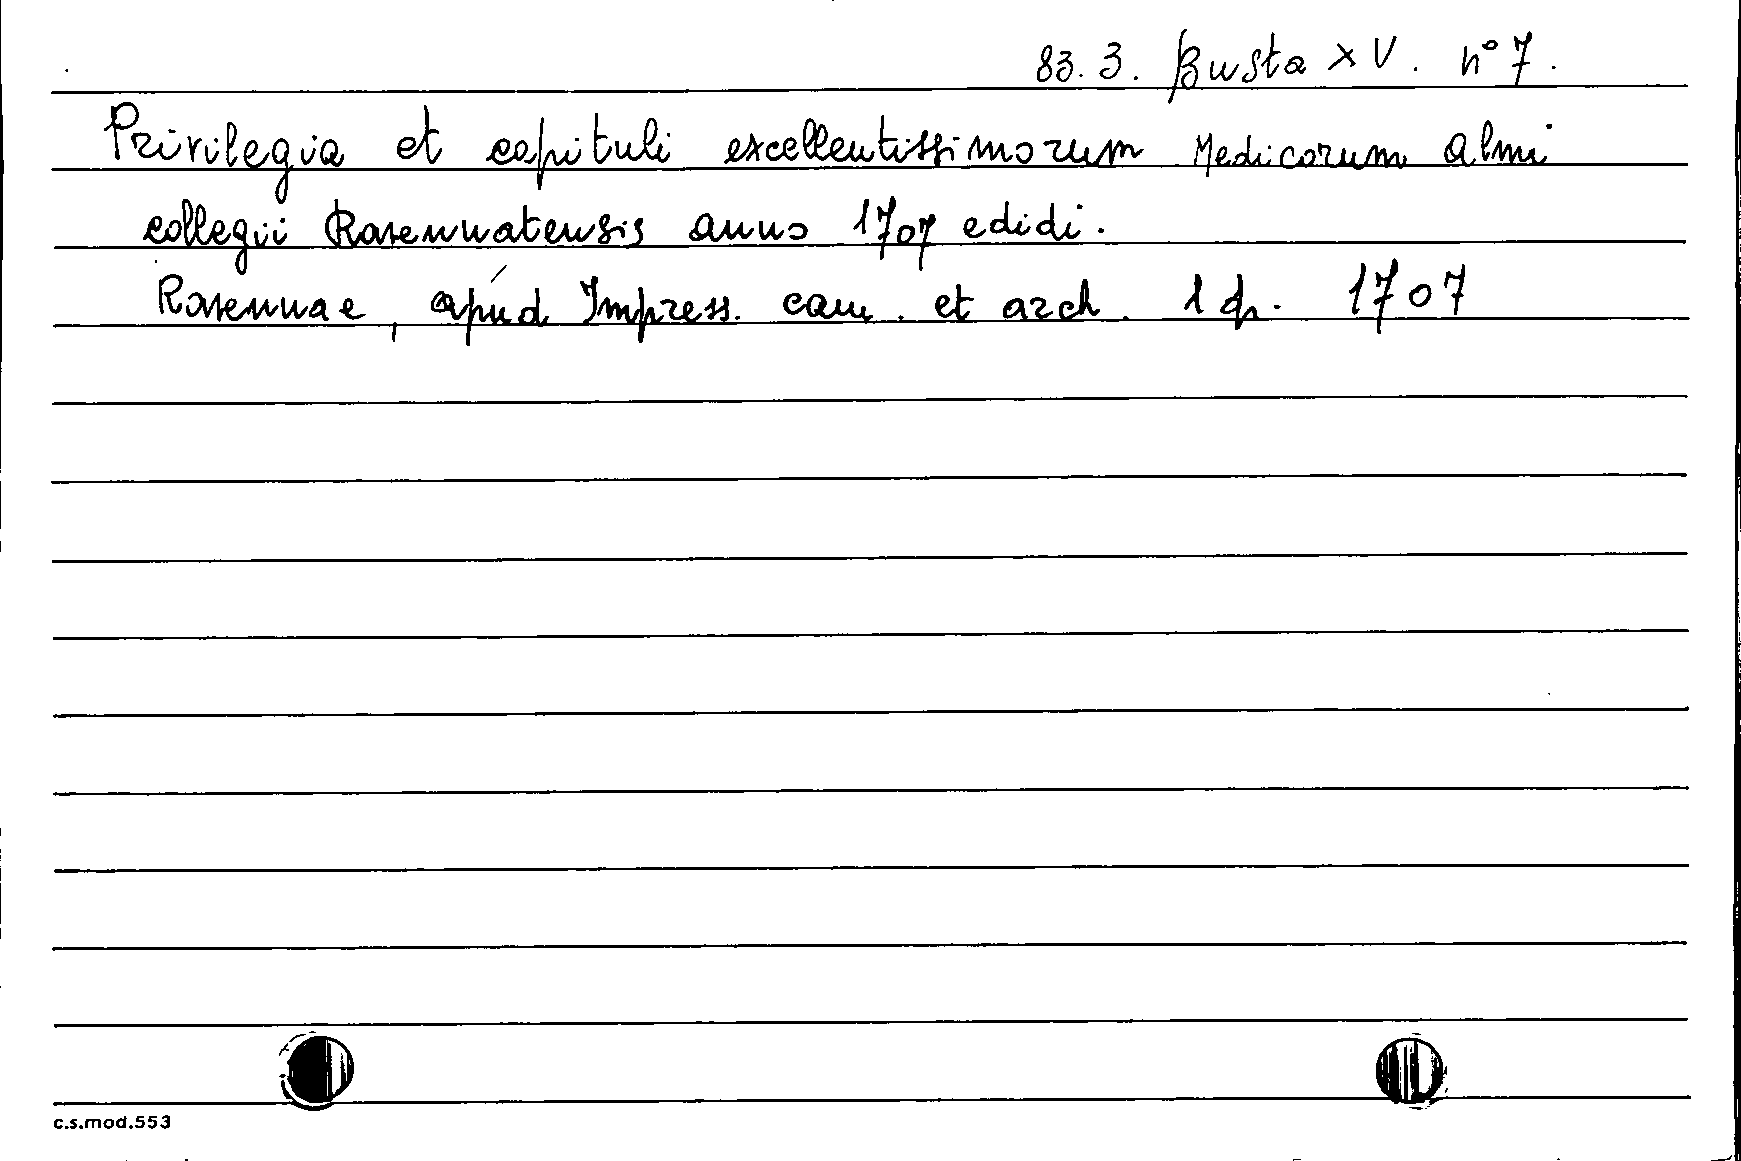 83. 3. Busta XV. n° 7.
Privilegia et capituli excellentissimorum Medicorum Almi
collegii Ravennatensis anno 1707 edidi.
Ravennae, apud Impress. cam. et arch. 1707
c.s.mod.553